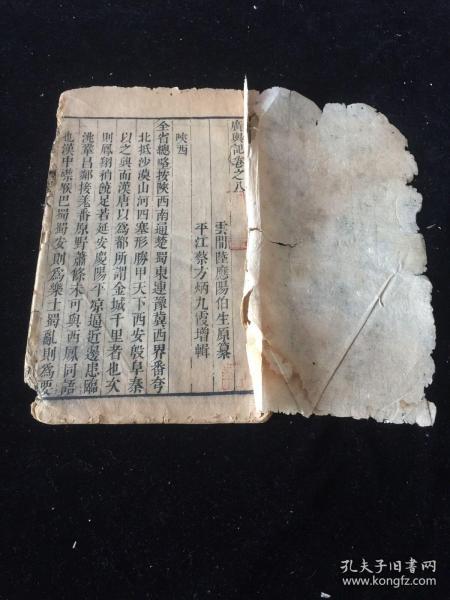 廣輿記卷之八
雲間陸應陽伯生原纂
平江蔡方炳九霞增輯
陜西
全省總略按陜西南通楚蜀東連豫冀西界番夸
北抵沙漠山河四塞形勝甲天下西安殷阜秦
以之興而漢唐以爲都所謂金城千里者也次
則鳳翔稍饒足若延安慶陽平凉逼近邊患臨
洮鞏昌鄰接羌番原野蕭條未可與西鳳同語
也漢中襟喉巴蜀蜀安則爲樂土蜀亂則爲要
孔夫子旧书网
www.kongfz.com